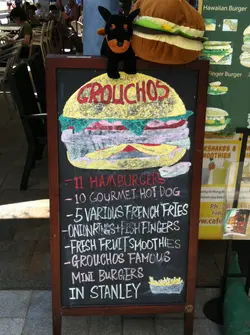 Hawaiian Burger
GROUCHOS
- 11 HAMBURGERS
- 10 GOURMET HOT DOG
- 5 VARIOUS FRENCH FRIES
- ONION RINGS + FISH FINGERS
- FRESH FRUIT SMOOTHIES
- GROUCHOS FAMOUS
MINI BURGERS
IN STANLEY
Finger Burger
SHAKES &
SMOOTHIES